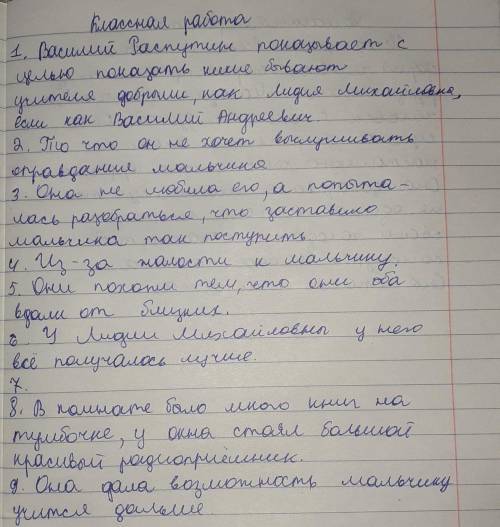 Классная работа
1. Василий Распутин показывает с
целью показать какие бывают
учителя добрыми, как Лидия Михайловна,
если как Василий Андреевич
2. То что он не хочет выслушивать
оправдания мальчика
3. Она не любила его, а попыта-
лась разобраться, что заставило
мальчика так поступить
4. Из-за жалости к мальчику.
5. Они похожи тем, что они оба
вдали от близких.
6. У Лидии Михайловны у него
всё получалось лучше.
7.
8. В комнате было много книг на
тумбочке, у окна стоял большой
красивый радиоприёмник.
9. Она дала возможность мальчику
учится дальше.